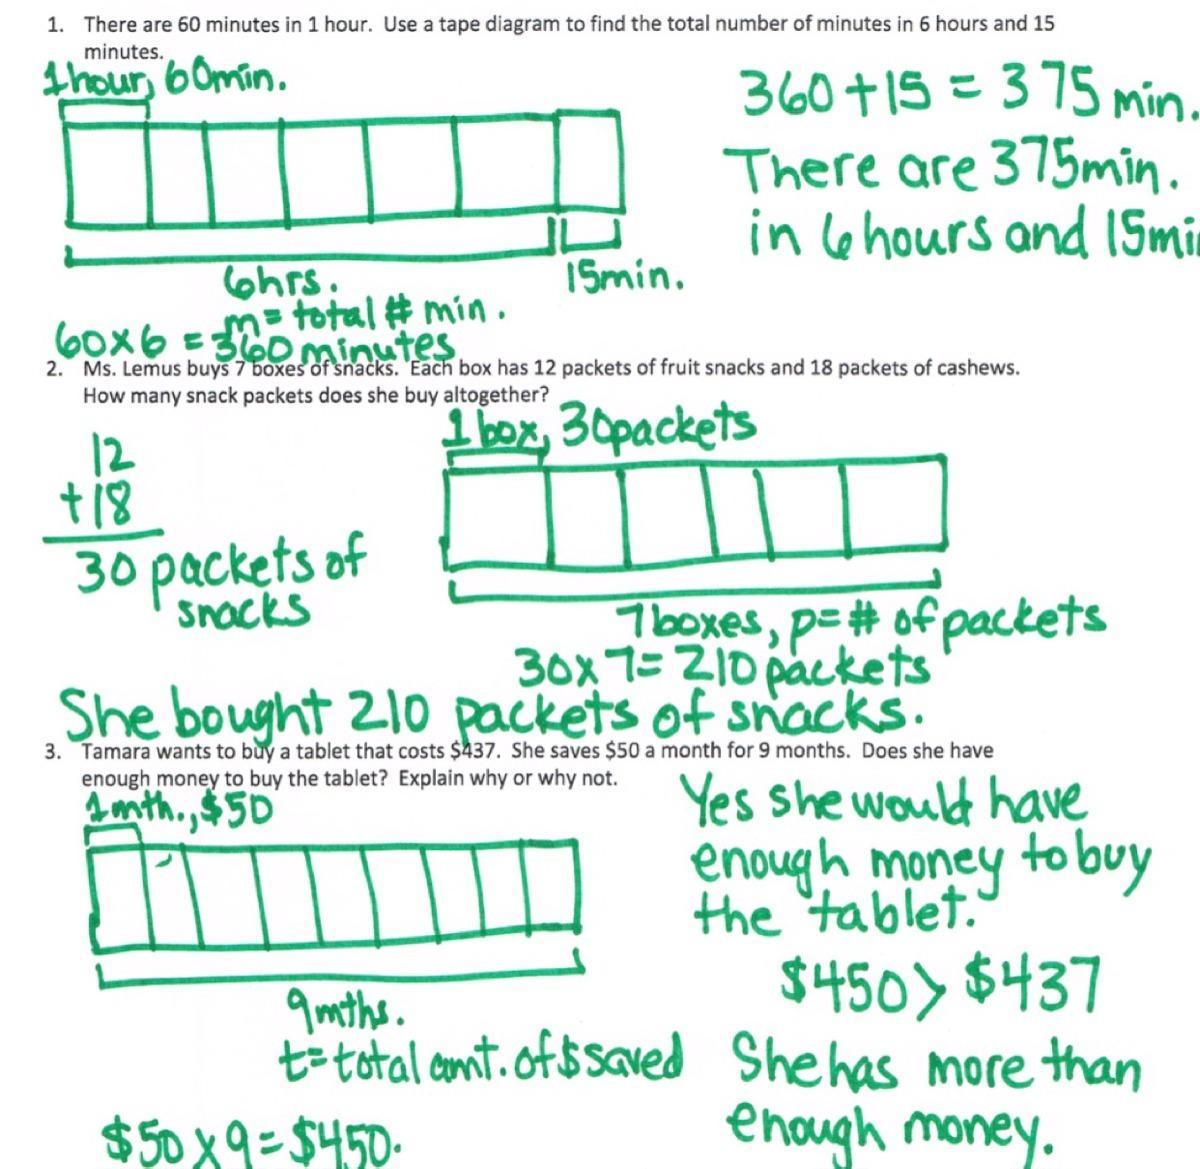 1. There are 60 minutes in 1 hour. Use a tape diagram to find the total number of minutes in 6 hours and 15
minutes.
1 hour, 60min.
6hrs.
15min.
m= total # min.
60x6 = 360 minutes
360+15 = 375 min.
There are 375min.
in 6 hours and 15mi
2. Ms. Lemus buys 7 boxes of snacks. Each box has 12 packets of fruit snacks and 18 packets of cashews.
How many snack packets does she buy altogether?
12
+18
30 packets of
snacks
1 box, 30packets
7boxes, p=# of packets
30x7= 210 packets
She bought 210 packets of snacks.
3. Tamara wants to buy a tablet that costs $437. She saves $50 a month for 9 months. Does she have
enough money to buy the tablet? Explain why or why not.
1mth., $50
9mths.
t= total amt. of $ saved
$50 x 9 = $450.
Yes she would have
enough money to buy
the tablet.
$450 > $437
She has more than
enough money.